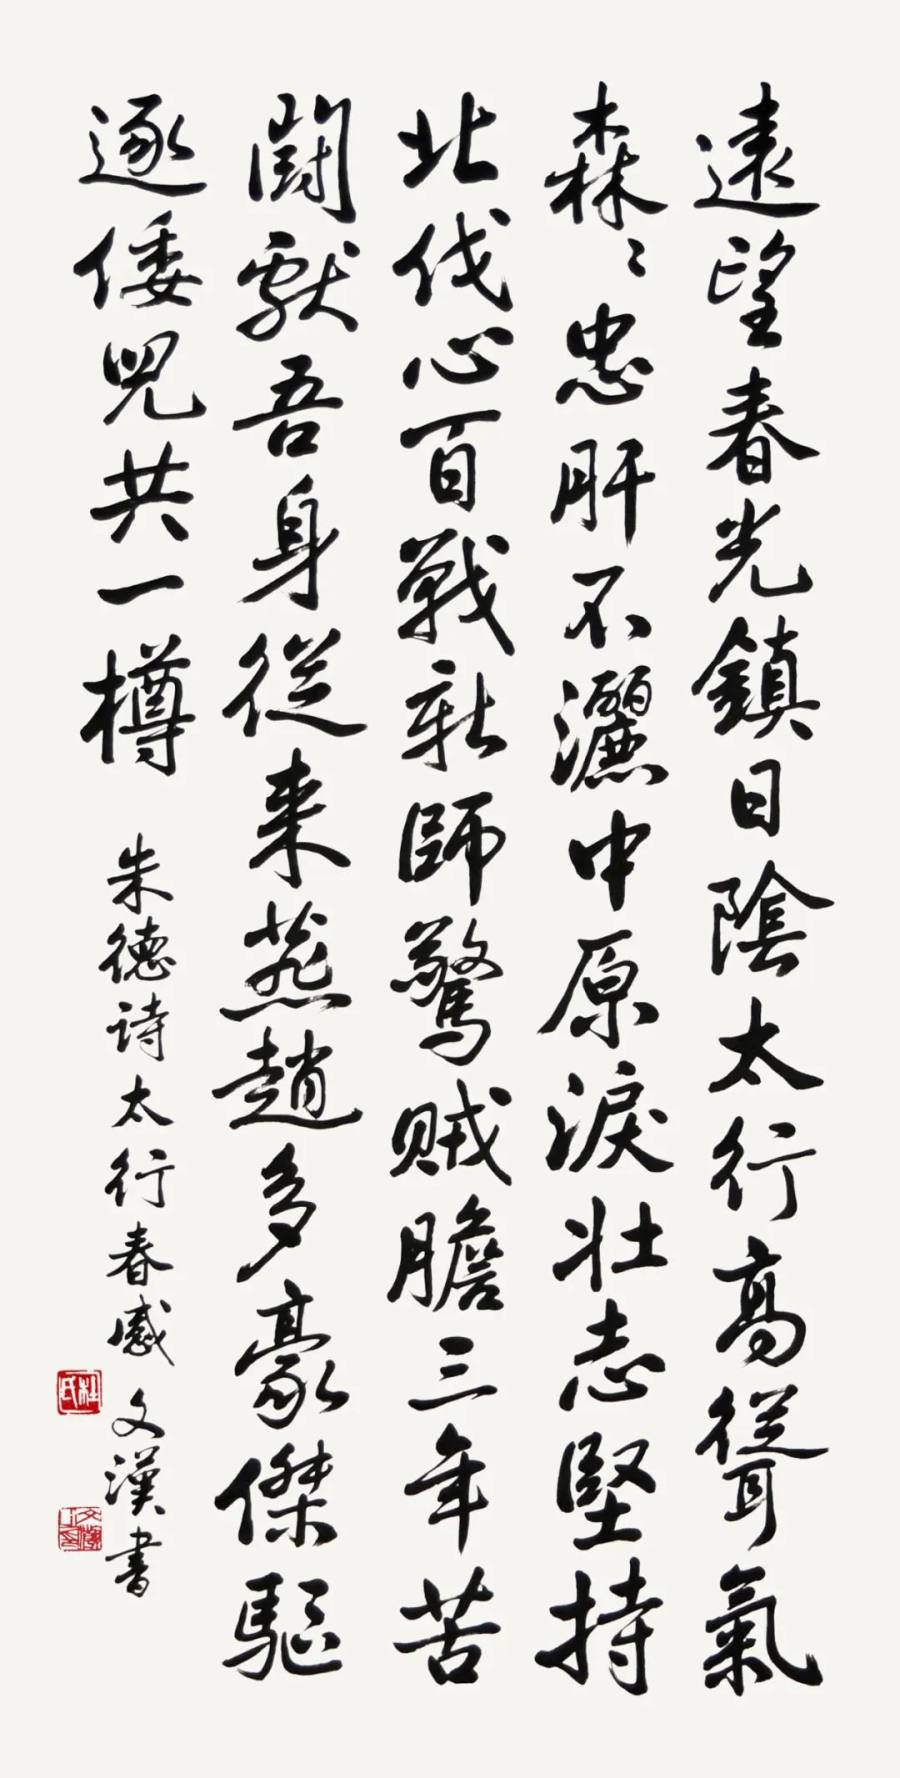 遠望春光鎮日陰太行高聳氣
森々忠肝不灑中原淚壯志堅持
北伐心百戰新師驚賊膽三年苦
鬪獻吾身從来燕趙多豪傑驅
逐倭兕共一樽
朱德诗太行春感 文漢書
杜氏